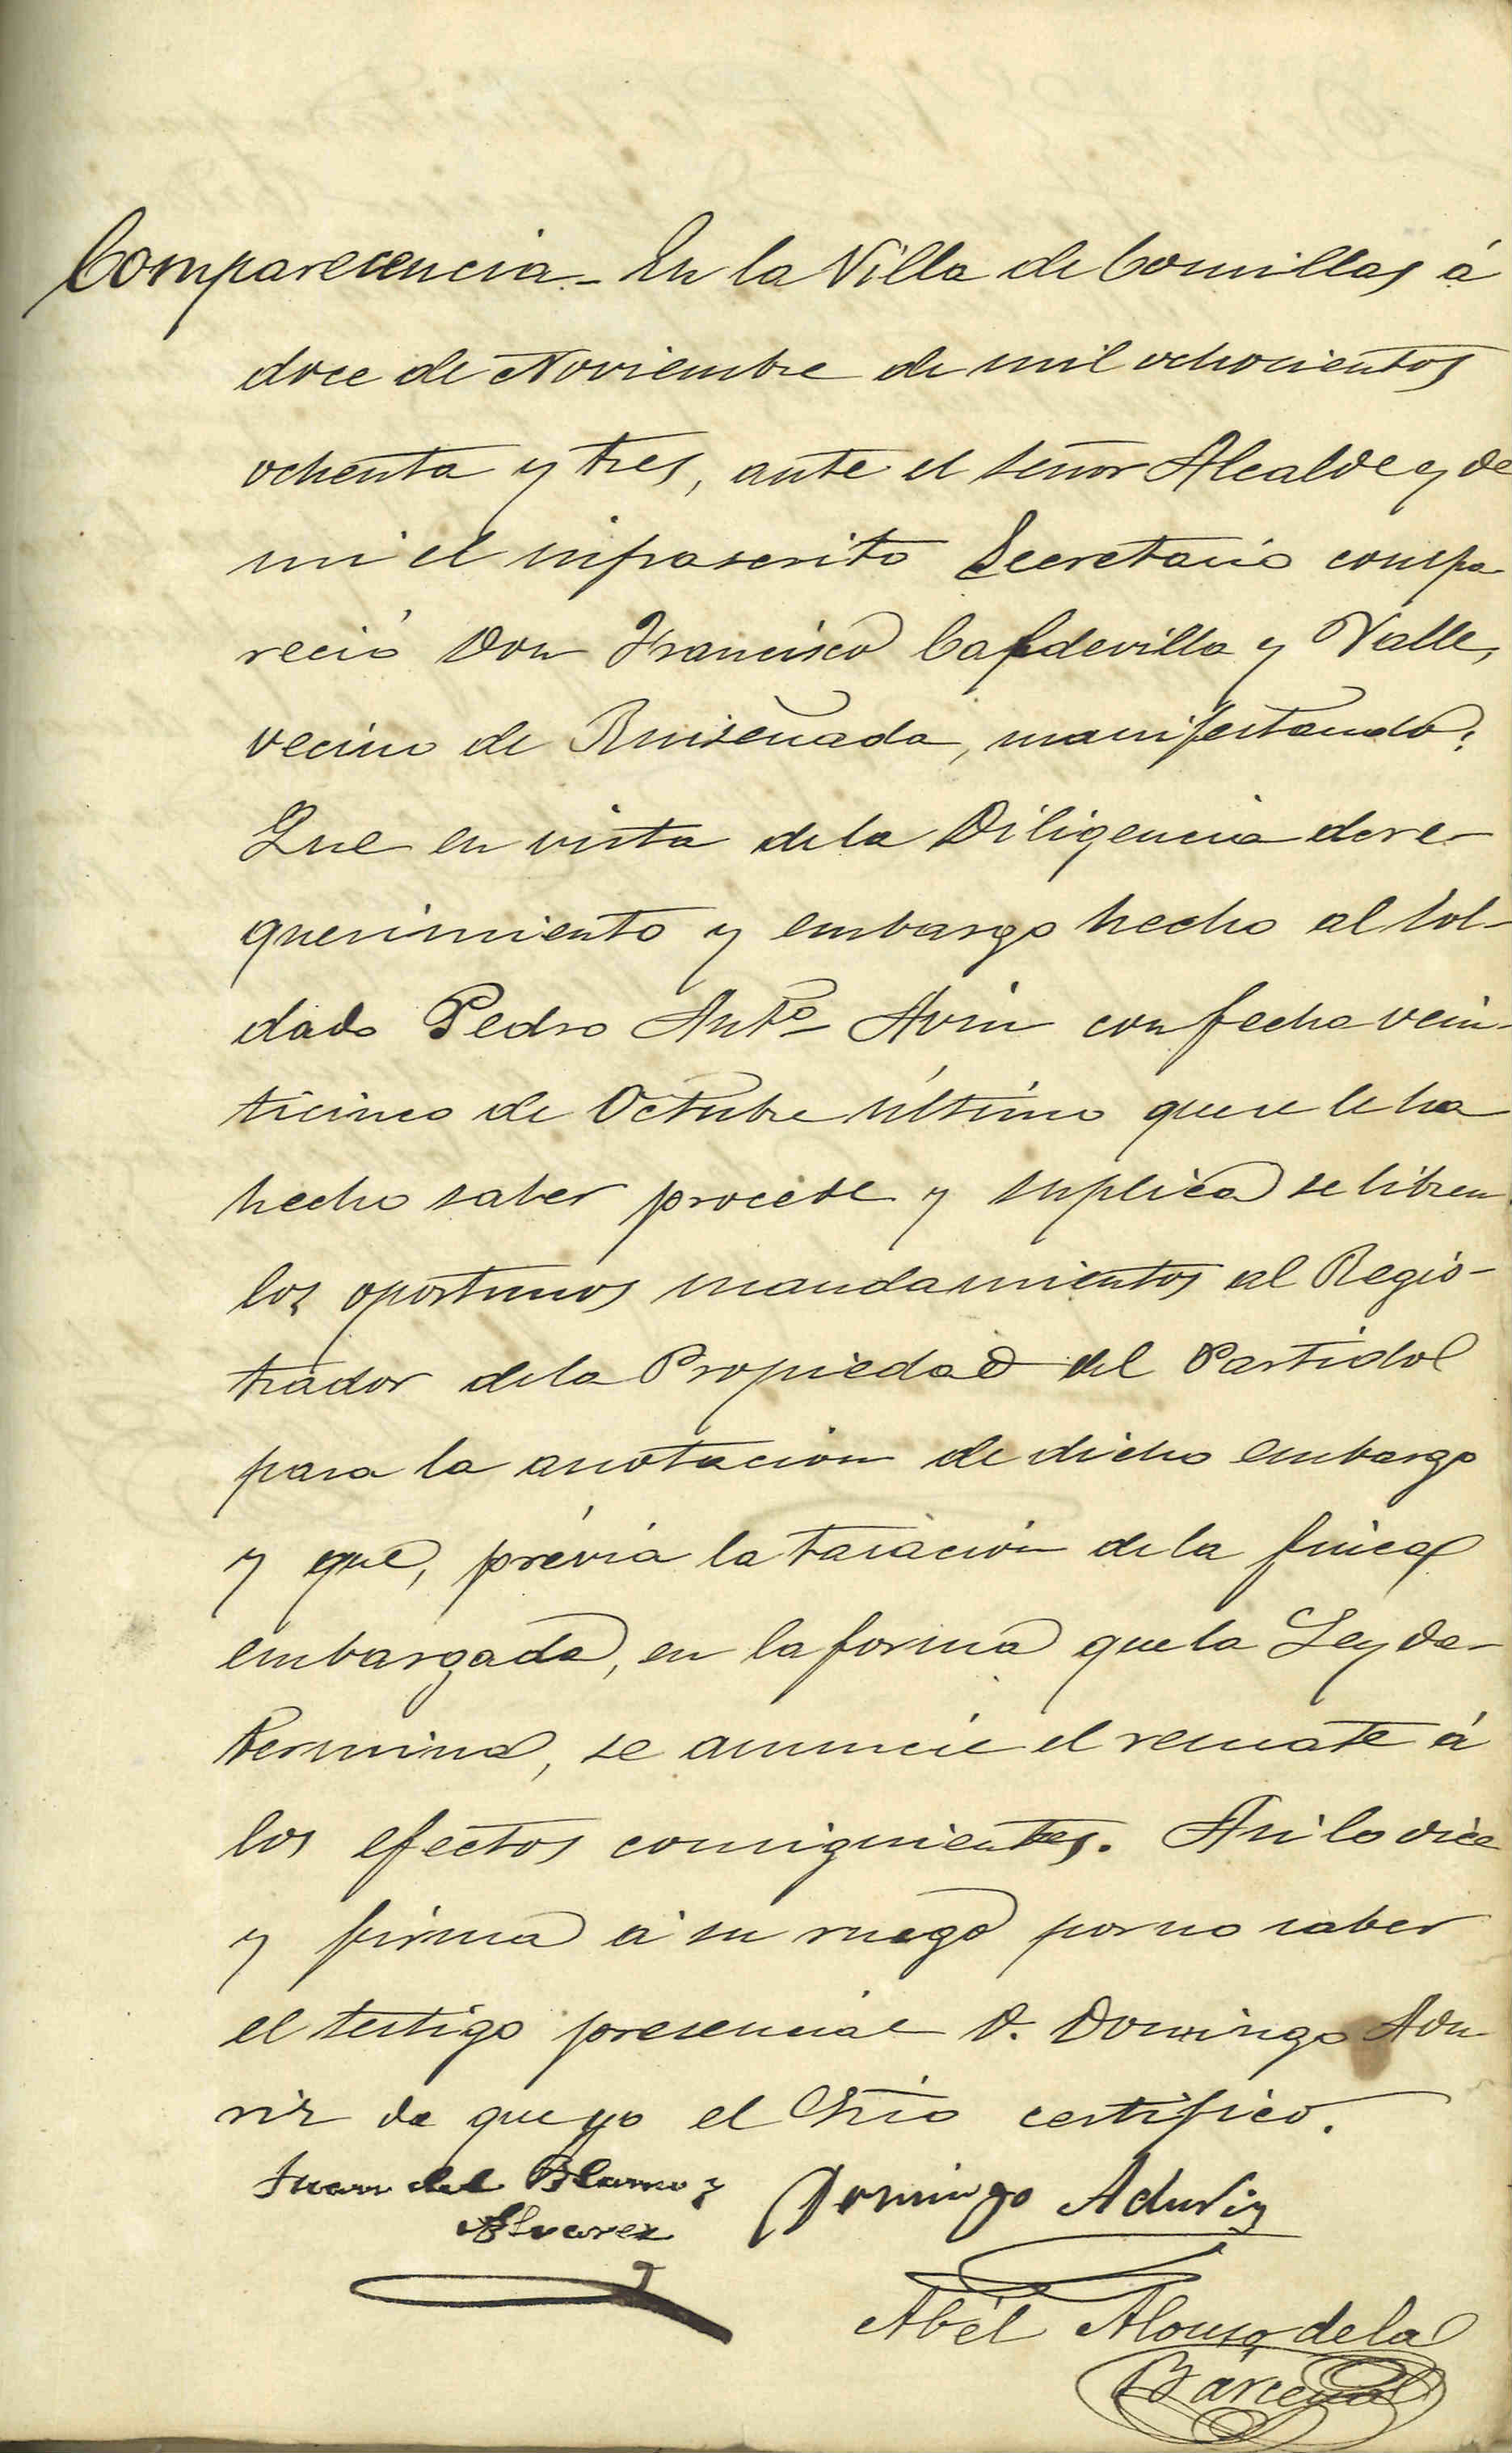 Comparecencia - En la Villa de Comillas á
doce de Noviembre de mil ochocientos
ochenta y tres, ante el señor Alcalde y de
mi el infrascrito Secretario compa
reció Don Francisco Capdevilla y Valle,
vecino de Ruiseñada, manifestando:
Que en vista dela Diligencia de re-
querimiento y embargo hecho al sol-
dado Pedro Antº Avin con fecha vein-
ticinco de Octubre último que se le ha
hecho saber procede y suplica se libren
los oportunos mandamientos al Regis-
trador dela Propiedad del Partido
para la anotacion de dicho embargo
y que, prévia la tasacion dela finca
embargada, en la forma que la Ley de-
termina, se anuncie el remate á
los efectos consiguientes. Asi lo dice
y firma á su ruego por no saber
el testigo presencial D. Domingo Adu-
riz de que yo el Srio certifico.
Juan del Blanco y Domingo Aduriz
Alvarez
Abél Alonso de la
Bárcena